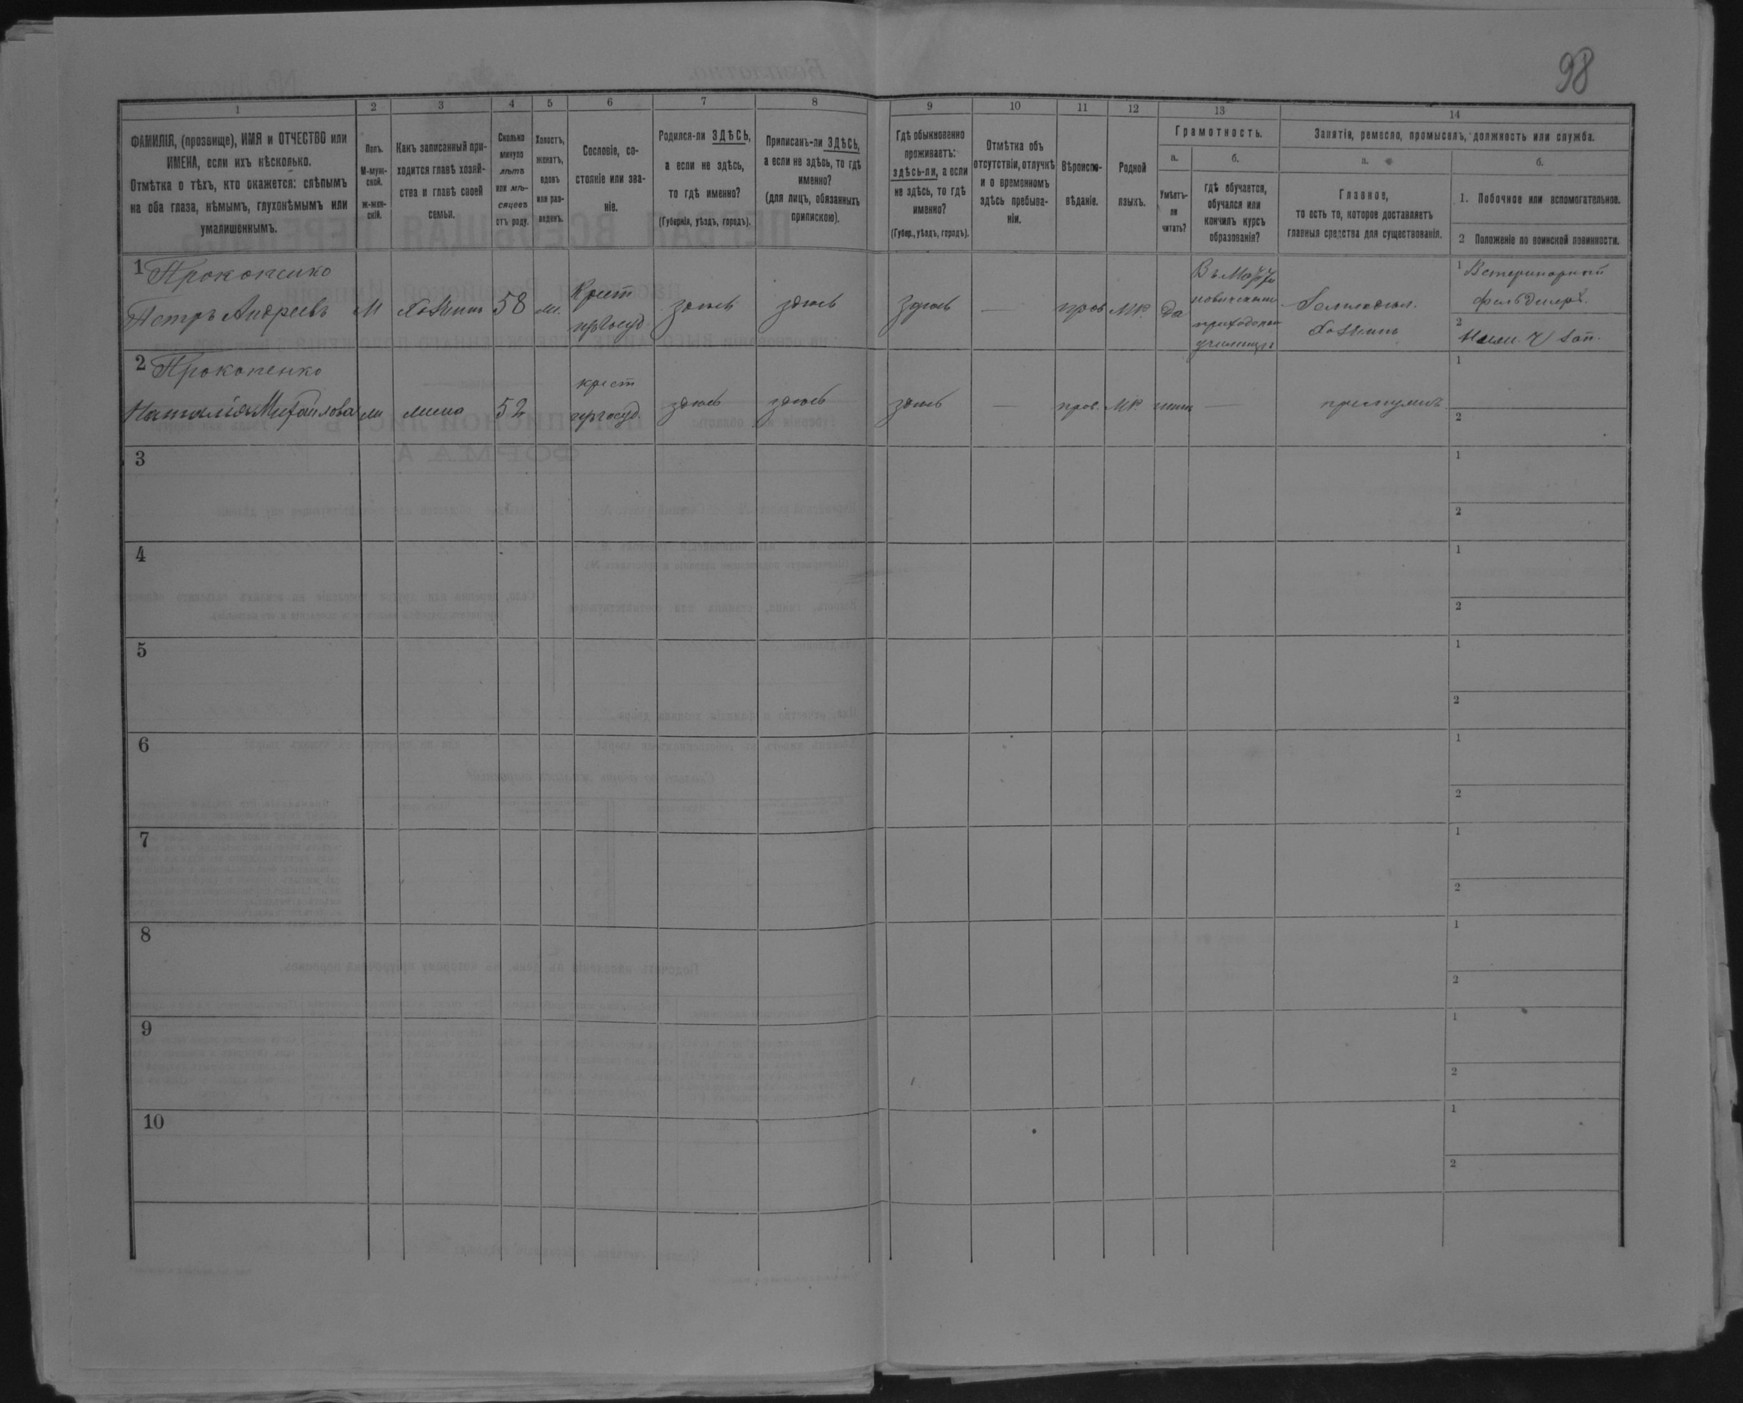 98
1 2 3 4 5 6 7 8 9 10 11 12 13 14
ФАМИЛІЯ, (прозвище), ИМЯ и ОТЧЕСТВО или
ИМЕНА, если ихъ нѣсколько.
Отмѣтка о тѣхъ, кто окажется: слѣпымъ
на оба глаза, нѣмымъ, глухонѣмымъ или
умалишеннымъ.
Полъ.
М-муж-
ской.
ж-жен-
скій.
Какъ записанный при-
ходится главѣ хозяй-
ства и главѣ своей
семьи.
Сколько
минуло
лѣтъ
или мѣ-
сяцевъ
отъ роду.
Холостъ,
женатъ,
вдовъ
или раз-
веденъ.
Сословіе, со-
стояніе или зва-
ніе.
Родился-ли ЗДѢСЬ,
а если не здѣсь,
то гдѣ именно?
(Губернія, уѣздъ, городъ).
Приписанъ-ли ЗДѢСЬ,
а если не здѣсь, то гдѣ
именно?
(для лицъ, обязанныхъ
припискою).
Гдѣ обыкновенно
проживаетъ:
здѣсь-ли, а если
не здѣсь, то гдѣ
именно?
(Губер., уѣздъ, городъ).
Отмѣтка объ
отсутствіи, отлучкѣ
и о временномъ
здѣсь пребыва-
ніи.
Вѣроиспо-
вѣданіе.
Родной
языкъ.
Грамотность.
а.
Умѣетъ-
ли
читать?
б.
гдѣ обучается,
обучался или
кончилъ курсъ
образованія?
Занятія, ремесло, промыселъ, должность или служба.
а.
Главное,
то есть то, которое доставляетъ
главныя средства для существованія.
б.
1. Побочное или вспомогательное.
2 Положеніе по воинской повинности.
1 Прокопенко
Петръ Андреевъ М Хозяинъ 58 Крест здѣсь здѣсь здѣсь — прав МР да
приходском
училищѣ
Хозяинъ
1 Ветеринарный
фельдшеръ
2
2 Прокопенко
Наталія Михайлова жена 52 крест здѣсь здѣсь здѣсь — прав. МР. —
1
2
3
1
2
4
1
2
5
1
2
6
1
2
7
1
2
8
1
2
9
1
2
10
1
2